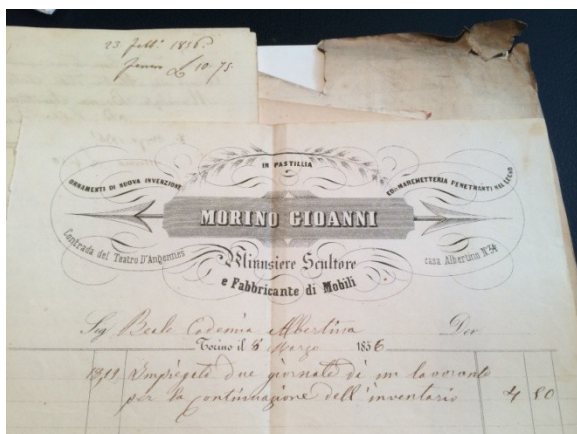 23 Febb. 1856
10 75
IN PASTILLIA
ORNAMENTI DI NUOVA INVENZIONE
ED MARCHETTERIA PENETRANTI NEL LEGNO
MORINO GIOANNI
Contrada del Teatro D'Angennes
Minusiere Scultore
casa Albertino N.34
e Fabbricante di Mobili
Sig Reale Cademia Albertina Der
Torino il 8 Marzo 1856
Impiegato due giornate di un lavorante
per la continuazione dell'inventario 4 80